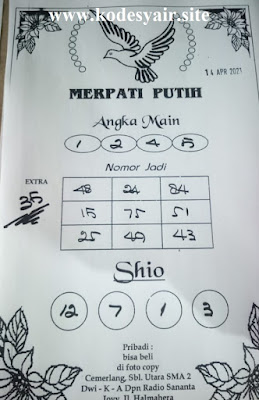 www.kodesyair.site
14 APR 2021
MERPATI PUTIH
Angka Main
1 2 4 5
Nomor Jadi
EXTRA
35
48 24 84
15 75 51
25 49 43
Shio
12 7 1 3
Pribadi :
bisa beli
di foto copy
Cemerlang, Sbl. Utara SMA 2
Dwi - K - A Dpn Radio Sananta
Jl. Halmahera